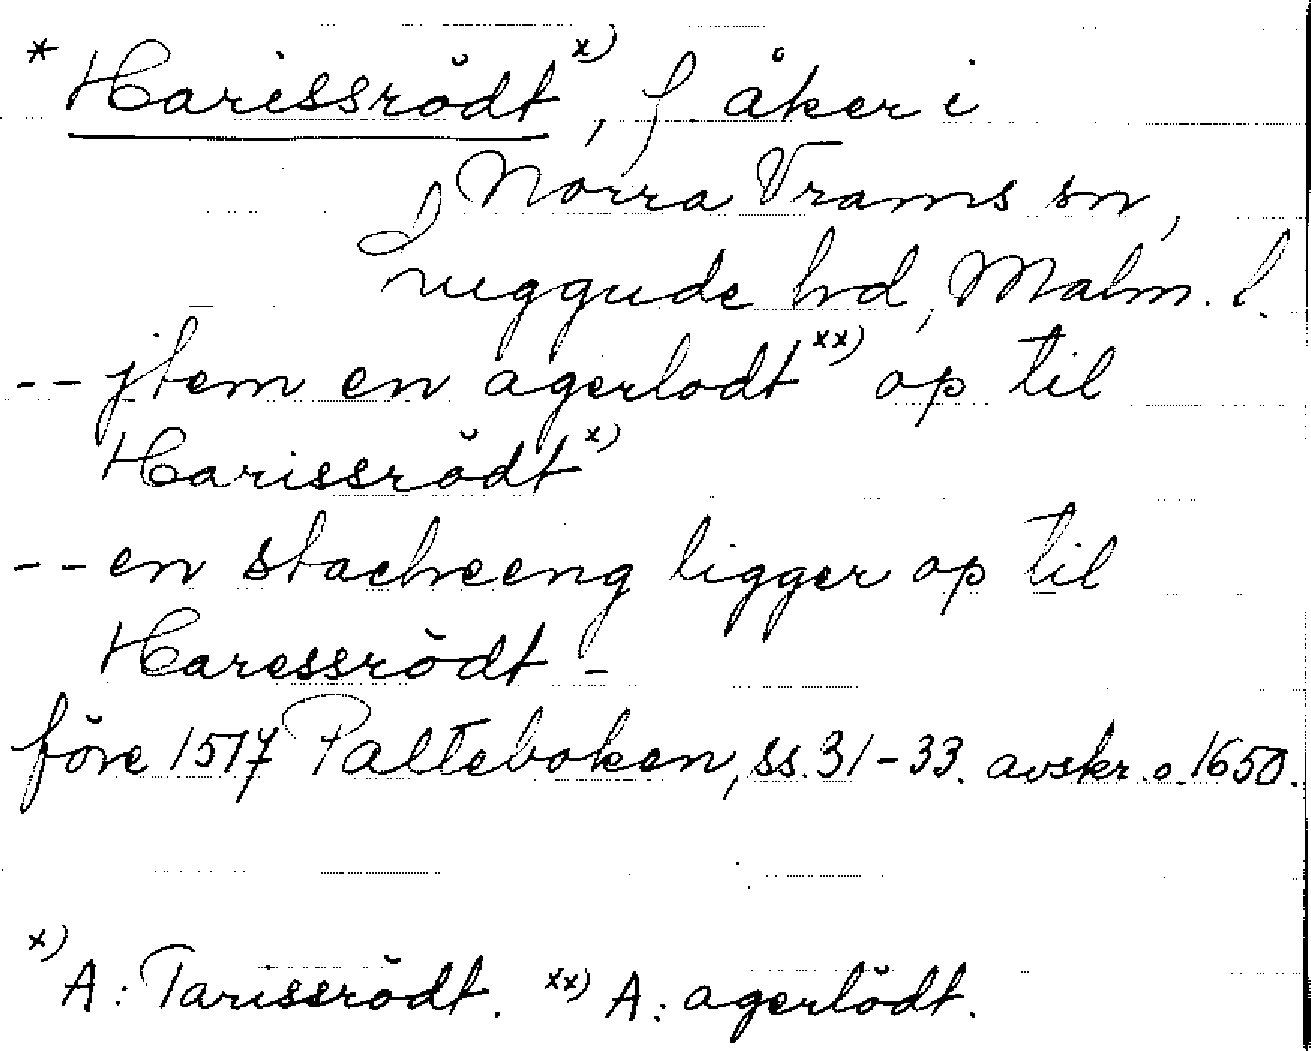 * Harissrödt x), f. åker i
Norra Vrams sn,
Luggude hd, Malm. l.
-- jtem en agerlodt xx) op til
Harissrödt x)
-- en stacheeng ligger op til
Haressrödt -
före 1517 Palteboken, ss. 31-33. avskr. o. 1650.
x) A: Tarissrödt. xx) A: agerlödt.